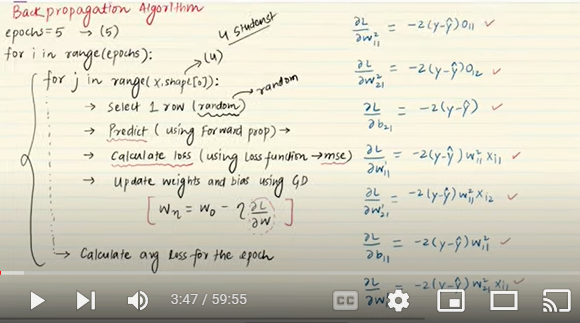 Backpropagation Algorithm
epochs=5 → (5)
4 students
for i in range(epochs):
(4)
for j in range(x.shape[0]):
→ random
→ Select 1 row (random)
→ Predict (using Forward prop) →
→ Calculate loss (using Loss function → mse)
→ Update weights and bias using GD
[ Wn = W0 - η ∂L/∂W ]
→ Calculate avg loss for the epoch
∂L/∂w²11 = -2(y-ŷ)O11 ✓
∂L/∂w²21 = -2(y-ŷ)O12 ✓
∂L/∂b21 = -2(y-ŷ) ✓
∂L/∂w¹11 = -2(y-ŷ)w²11 xi1 ✓
∂L/∂w¹21 = -2(y-ŷ)w²11 xi2 ✓
∂L/∂b11 = -2(y-ŷ)w²11 ✓
∂L/∂w = -2(y-ŷ)w²21 xi1 ✓
3:47 / 59:55
CC